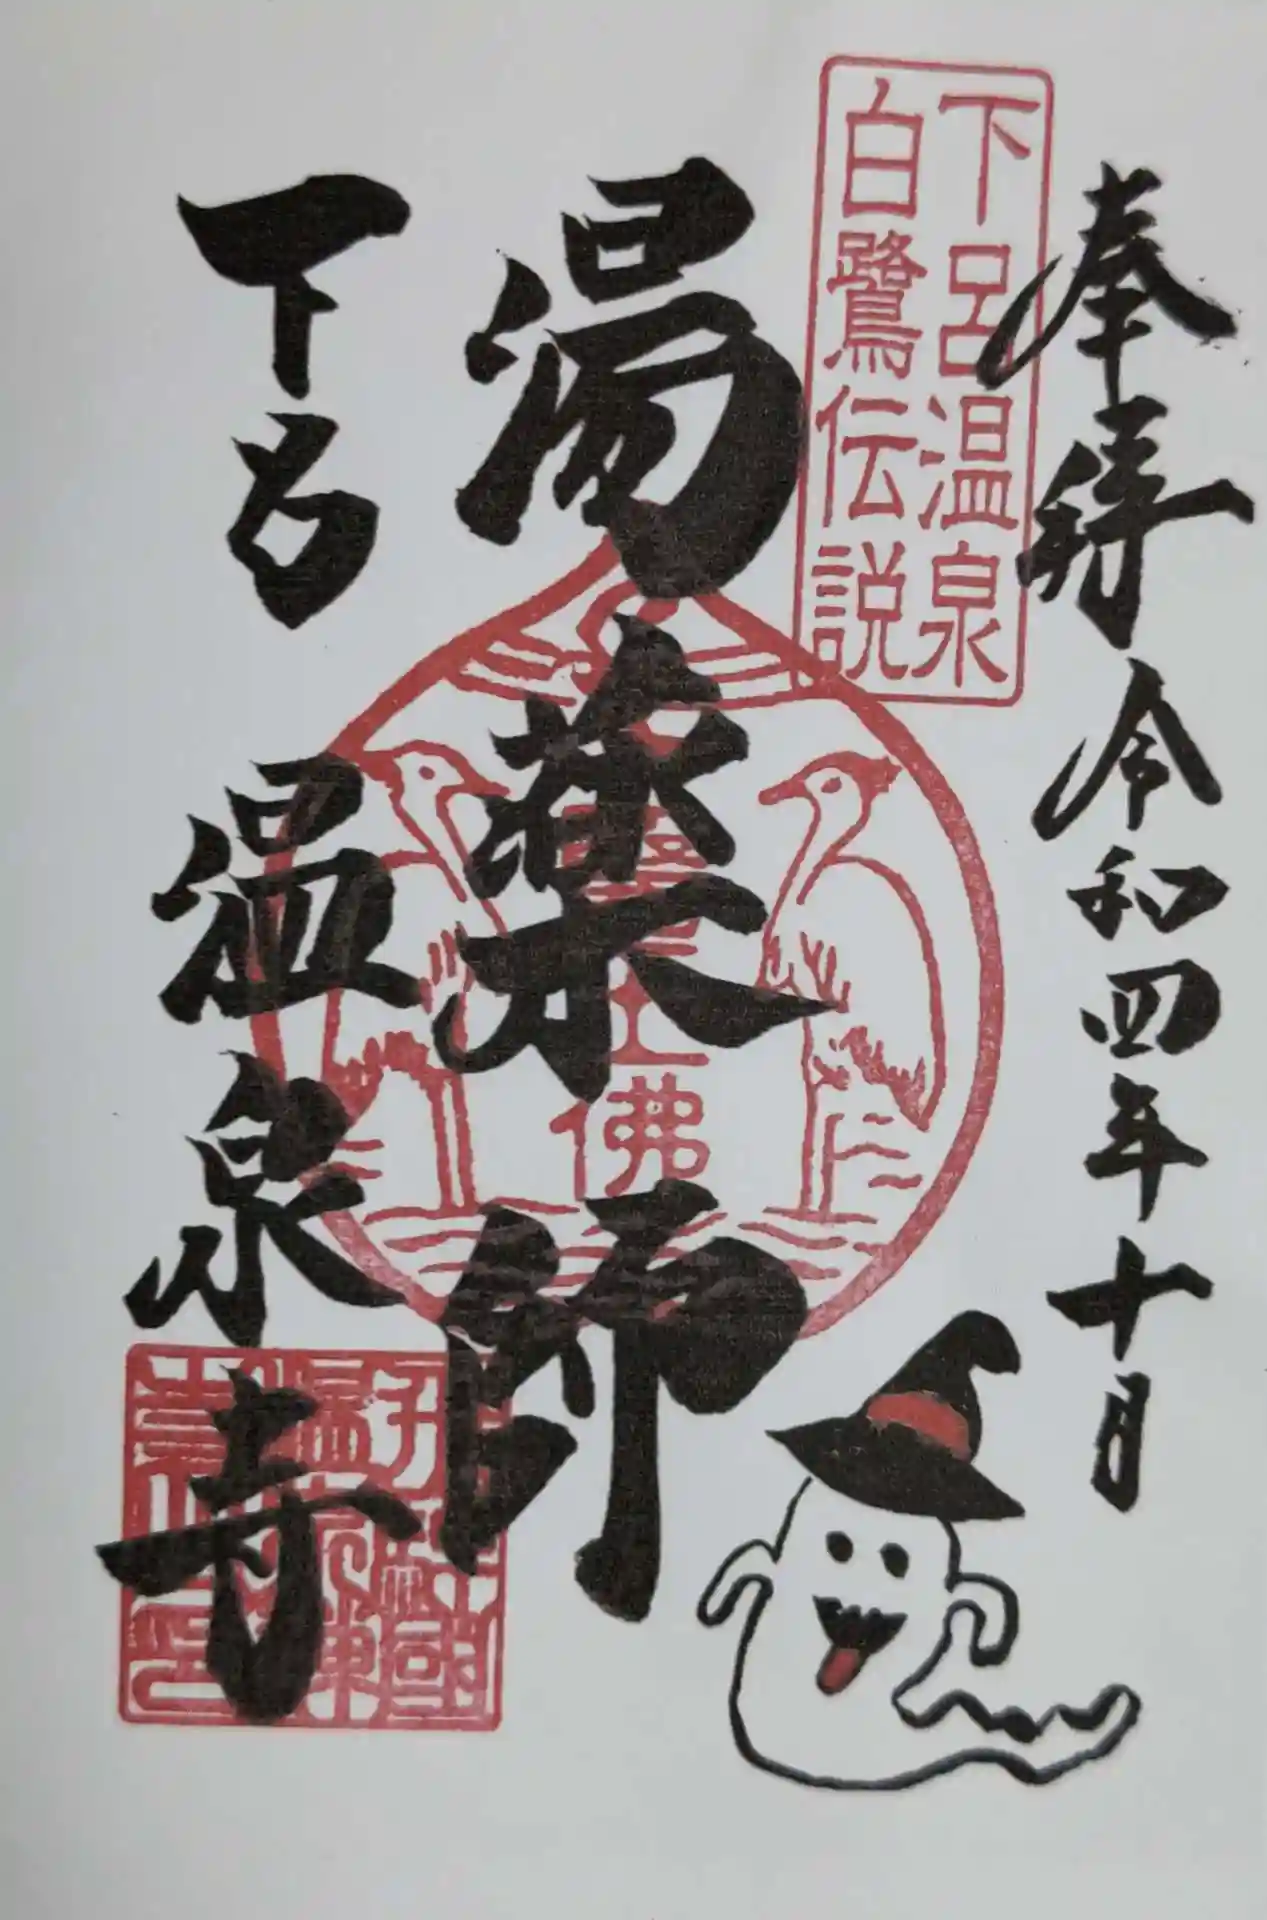 奉拝 令和四年十月
下呂温泉
白鷺伝説
湯薬師
佛
下呂 温泉寺